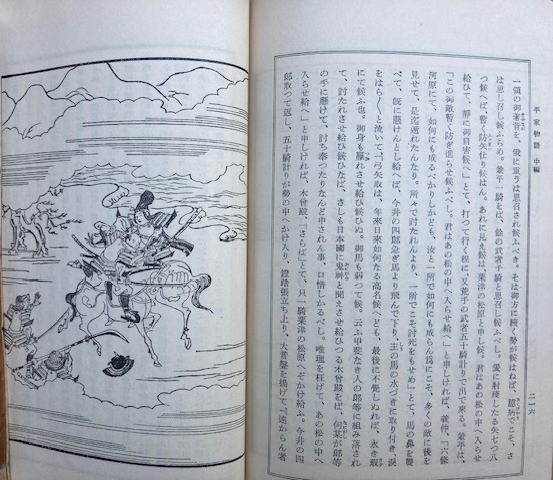 平家物語 中編
二一六
一領の御著背を、俄に重うは思召され候ふべき。そは御方に續く勢が候はねば、臆病でこそ、さ
は思し召し候ふらめ。兼平一騎をば、餘の武者千騎と思召し候ふべし。爰に射殘したる矢七つ八
つ候へば、暫く防矢仕り候はん。あれに見え候は粟津の松原と申し候。君はあの松の中へ入らせ
給ひて、靜に御自害候へ」とて、打つて行く程に、又荒手の武者五十騎計りで出で來る。兼平は、
「この御敵暫く防ぎ進らせ候ふべし。君はあの松の中へ入らせ給へ」と申しければ、義仲、「六條
河原にて、如何にも成るべかりしかども、汝と一所で如何にも成らん爲にこそ、多くの敵に後を
見せて、是迄遁れたんなり。所々で討たれんより、一所でこそ討死をもせめ」とて、馬の鼻を竝
べて、既に懸けんとし給へば、今井の四郎急ぎ馬より飛んで下り、主の馬の水づきに取り付き、淚
をはら〱と流いて、「弓矢取は、年來日來如何なる高名候へども、最後に不覺しぬれば、永き瑕
にて候ふ也。御身も勞れさせ給ひ候ひぬ。御馬も弱つて候。云ふ甲斐なき人の郎等に組み落されて
て、討たれさせ給ひ候ひなば、さしも日本國に鬼神と聞えさせ給ひつる木曾殿をば、何某が郎等
の手に懸けて、討ち奉つたりなんど申されん事、口惜しかるべし。唯理を枉げて、あの松の中へ
入らせ給へ」と申しければ、木曾殿、「さらば」とて、只一騎粟津の松原へぞかけ給ふ。今井の四
郎取つて返し、五十騎計りが勢の中へかけ入り、鐙踏張立ち上り、大音聲を揚げて、「遠からん者